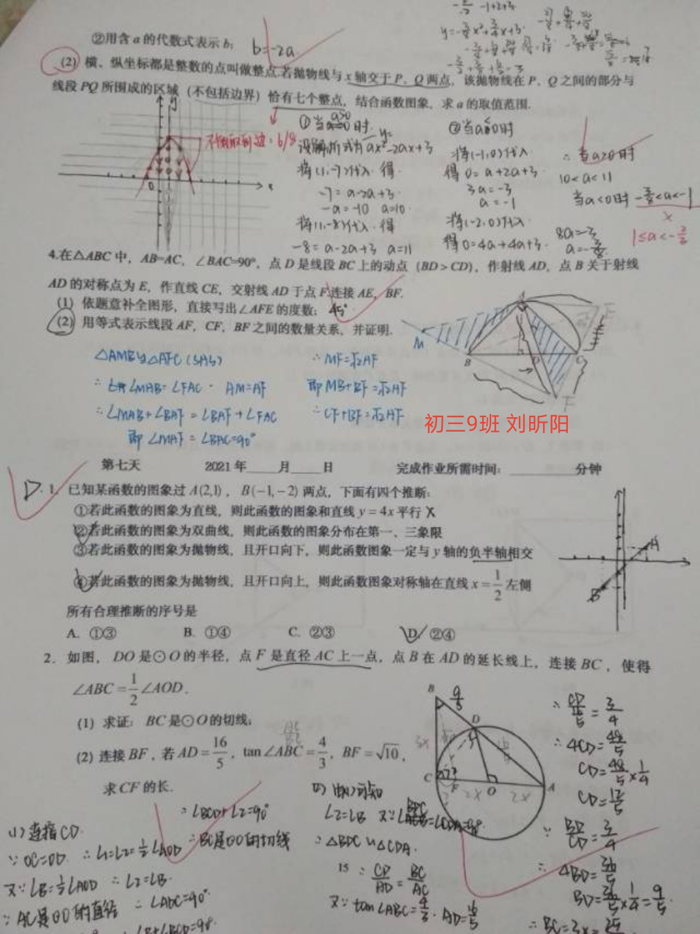 ②用含 a 的代数式表示 b; b=-2a.
(2) 横、纵坐标都是整数的点叫做整点.若抛物线与 x 轴交于 P、Q 两点，该抛物线在 P、Q 之间的部分与
线段 PQ 所围成的区域（不包括边界）恰有七个整点，结合函数图象，求 a 的取值范围.
①当a>0时
设解析式为 ax²-2ax+3
将(1,-7)代入 得
-7=a-2a+3
-a=-10 a=10.
将(1,-8)代入.得
-8=a-2a+3 a=11
②当a<0时
将(-1,0)代入
得0=a+2a+3
3a=-3
a=-1
将(-2,0)代入
得0=4a+4a+3.
8a=-3
∴当a>0时
10<a<11
当a<0时
4.在△ABC 中，AB=AC，∠BAC=90°，点 D 是线段 BC 上的动点（BD>CD），作射线 AD，点 B 关于射线
AD 的对称点为 E，作直线 CE，交射线 AD 于点 F.连接 AE，BF.
(1) 依题意补全图形，直接写出∠AFE 的度数; 45°
(2) 用等式表示线段 AF，CF，BF 之间的数量关系，并证明.
M
A
B
D
C
E
F
△AMB≌△AFC(SAS)
∴∠MAB=∠FAC · AM=AF
∴∠MAB+∠BAF=∠BAF+∠FAC
即∠MAF=∠BAC=90°
∴MF=√2AF
即MB+BF=√2AF
∴CF+BF=√2AF
初三9班 刘昕阳
第七天 2021 年____月____日 完成作业所需时间: ________分钟
D. 1. 已知某函数的图象过 A(2,1)，B(−1,−2) 两点，下面有四个推断:
①若此函数的图象为直线，则此函数的图象和直线 y=4x 平行 X
②若此函数的图象为双曲线，则此函数的图象分布在第一、三象限
③若此函数的图象为抛物线，且开口向下，则此函数图象一定与 y 轴的负半轴相交
④若此函数的图象为抛物线，且开口向上，则此函数图象对称轴在直线 x=1/2 左侧
A
B
所有合理推断的序号是
A. ①③ B. ①④ C. ②③ D. ②④
2. 如图，DO 是⊙O 的半径，点 F 是直径 AC 上一点，点 B 在 AD 的延长线上，连接 BC，使得
∠ABC=1/2∠AOD.
(1) 求证: BC 是⊙O 的切线;
(2) 连接 BF，若 AD=16/5，tan∠ABC=4/3，BF=√10，
求 CF 的长.
B
D
C
F
O
A
9/5
2x
2x
(1) 连接CD.
∵OC=OD. ∴∠1=∠2=½∠AOD
又∵∠B=½∠AOD ∴∠2=∠B.
∵AC是⊙O的直径 ∴∠ADC=90°
∴∠BCD+∠2=90°
∴BC是⊙O的切线
(2) 由(1)可知
∴△BDC∽△CDA.
15
∴CD/AD=BC/AC
又∵tan∠ABC=4/3. AD=16/5
∴4CD=48/5
CD=48/5×1/4
CD=12/5
∵BD/CD=3/4
∴4BD=36/5
BD=36/5×1/4=9/5